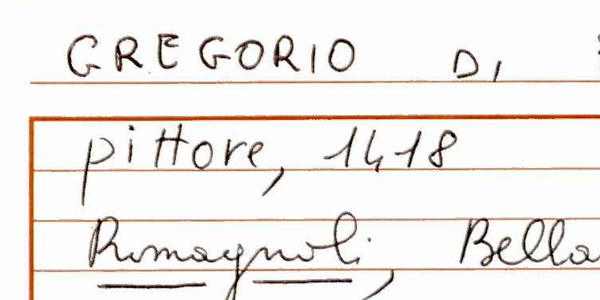 GREGORIO DI
pittore, 1418
Romagnoli, Bella